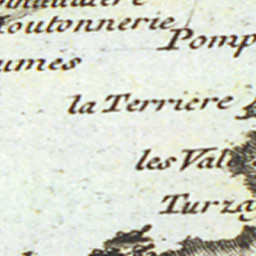 outonnerie
Pomp
umes
la Terriere
les Val
Turzay